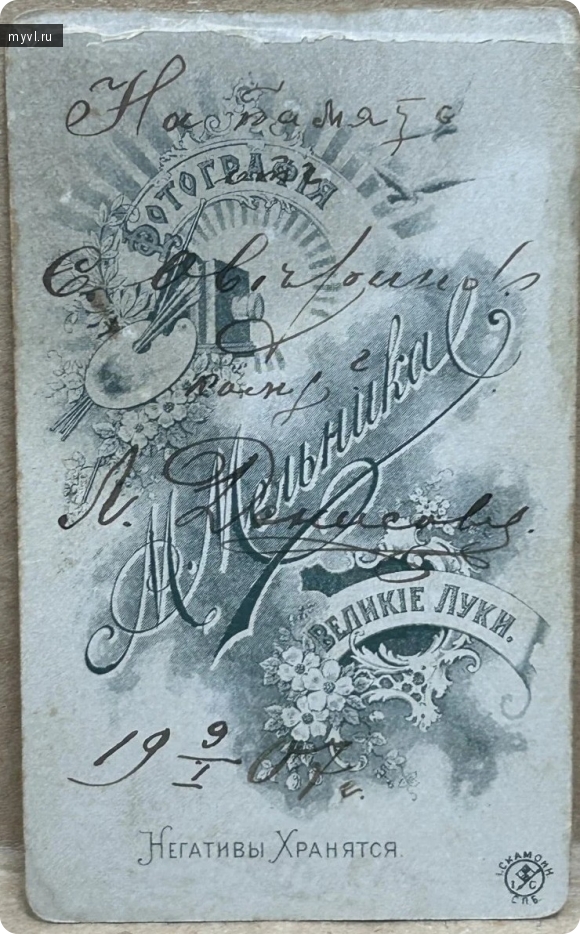 myvl.ru
На память
ФОТОГРАФІЯ
отъ
С. Овчинников
М. Мельника
Л. Денисовъ.
ВЕЛИКІЕ ЛУКИ.
19 9/I 07 г.
НЕГАТИВЫ ХРАНЯТСЯ.
І. СКАМОНИ
I G
СПБ